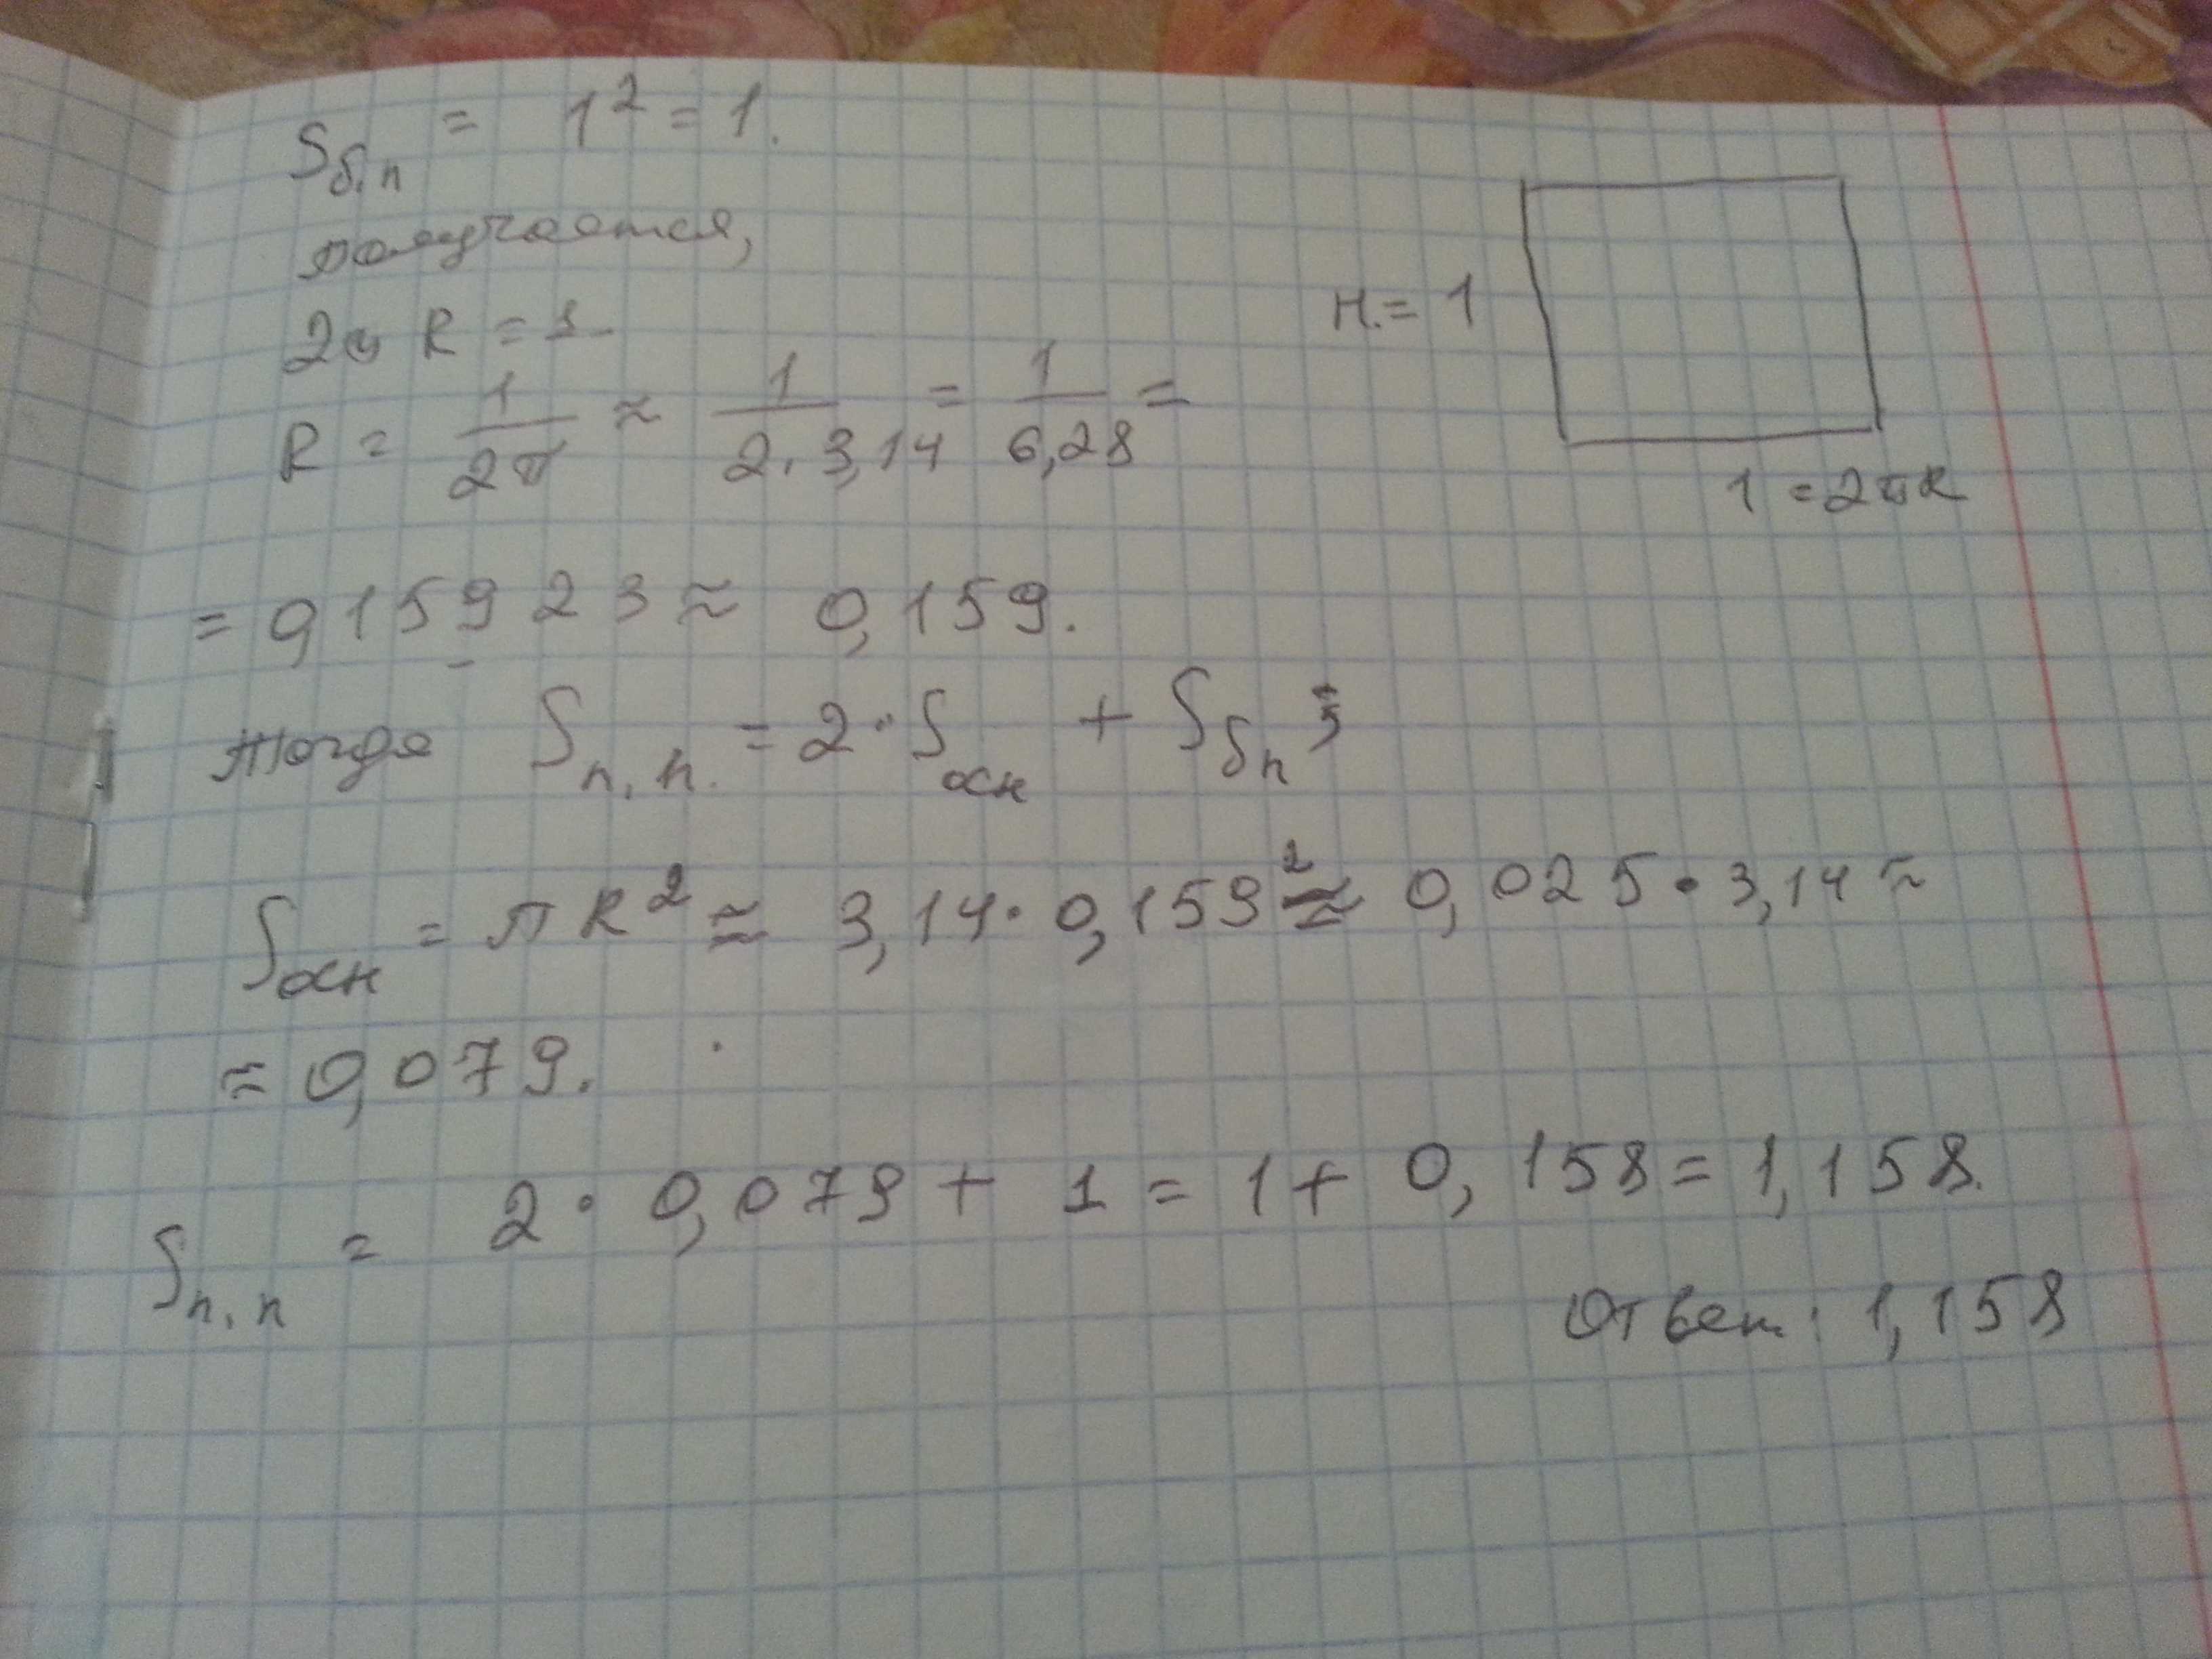 Sб.п = 1² = 1.
получается,
2π R = 1
R = 1/2π ≈ 1/2·3,14 = 1/6,28 =
H = 1
1 = 2πR
= 0,15923 ≈ 0,159.
Тогда Sп.п. = 2·Sосн + Sбп;
Sосн = πR² ≈ 3,14·0,159² ≈ 0,025·3,14 ≈
≈ 0,079.
Sп.п = 2·0,079 + 1 = 1 + 0,158 = 1,158.
Ответ: 1,158